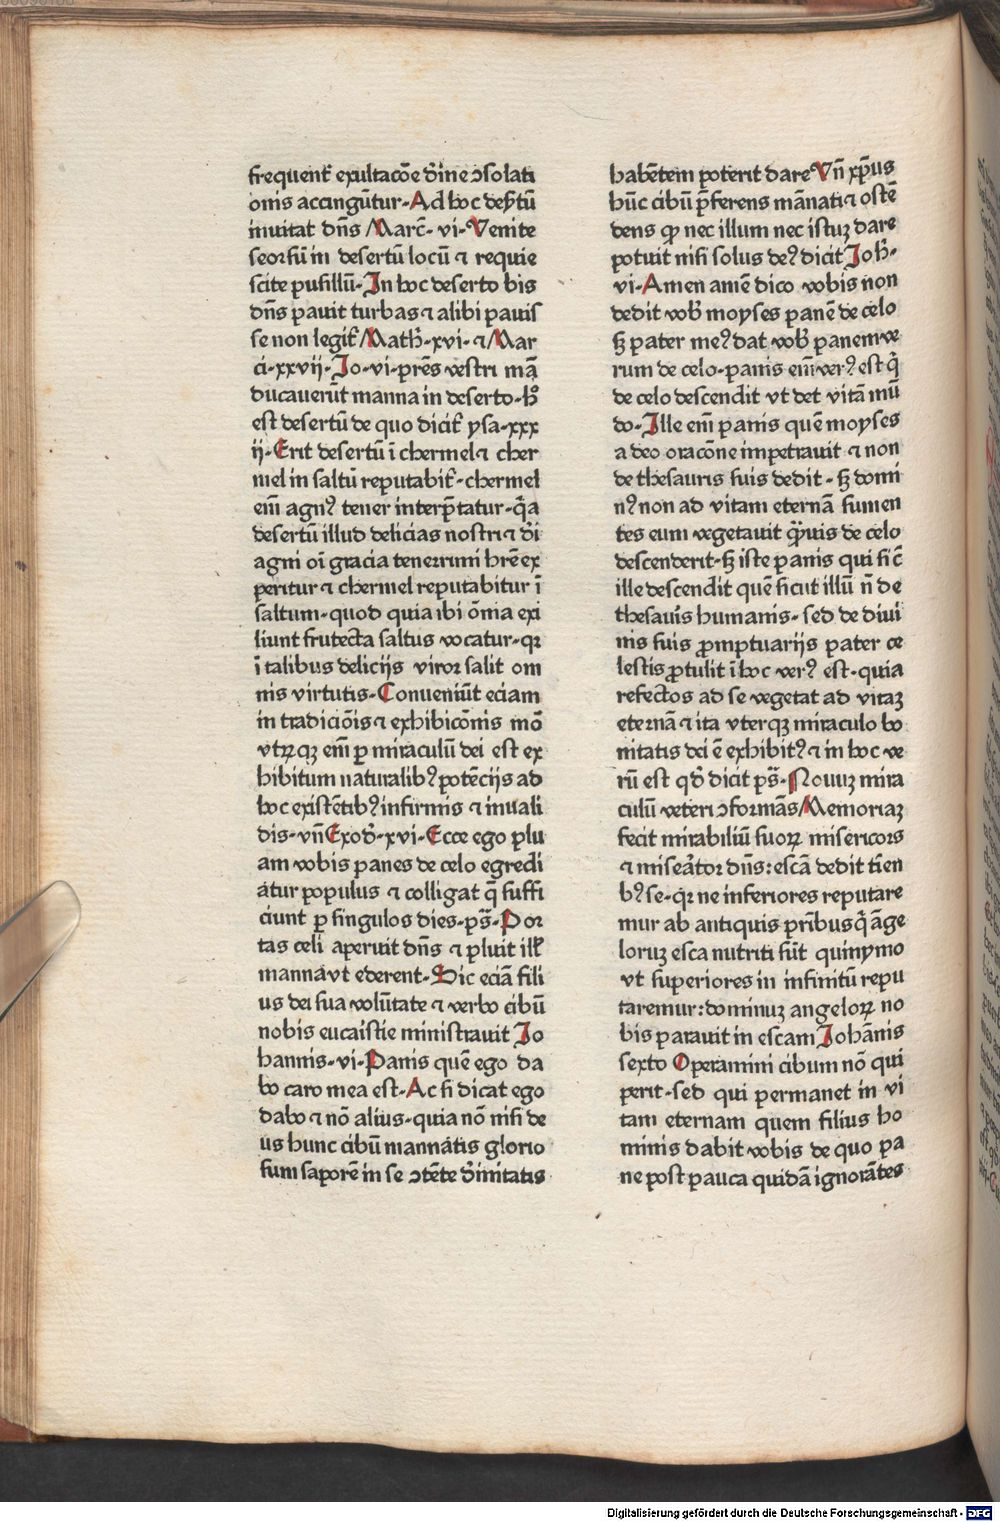 frequent᷑ exultacōe d̓ine ↄsolati
onis accingūtur· Ad hoc dese̓tū
inuitat dn̄s Marc̄· vi· Venite
seorsū in desertū locū ⁊ requie
scite pusillū· In hoc deserto bis
dn̄s pauit turbas ⁊ alibi pauis
se non legit᷑ Math̄· xvi· ⁊ Mar
ci· xxvij· Jo· vi· pr̄es vestri mā
ducauerūt manna in deserto· h̊
est desertū de quo dicit᷑ ysa· xxx
ij· Erit desertū ī chermel ⁊ cher
mel in saltū reputabit᷑· chermel
em̄ agnꝰ tener interp̄tatur· q̄a
desertū illud delicias nostri ⁊ d̓i
agni oī gracia tenerrimi hr̄e ex
peritur ⁊ chermel reputabitur ī
saltum· quod quia ibi ōnia exi
liunt frutecta saltus vocatur· qꝛ
ī talibus delicijs viror salit om
nis virtutis· Conueniūt eciam
in tradiciōis ⁊ exhibicōnis mō
vtrūqꝫ em̄ ꝑ miraculū dei est ex
hibitum naturalibꝰ potēcijs ad
hoc existētibꝰ infirmis ⁊ inuali
dis· vn̄ Exod̓· xvi· Ecce ego plu
am vobis panes de celo egredi
atur populus ⁊ colligat q̄ suffi
ciunt ꝑ singulos dies· ps̄· Por
tas celi aperuit dn̄s ⁊ pluit ill̓
manna vt ederent· Sic eciā fili
us dei sua volūtate ⁊ verbo cibū
nobis eucaistie ministrauit Jo
hannis· vi· Panis quē ego da
bo caro mea est· Ac si dicat ego
dabo ⁊ nō alius· quia nō nisi de
us hunc cibū mannātis glorio
sum saporē in se ↄtēte d̓initatis
habētem poterit dare Vn̄ xp̄us
hūc cibū p̄ferens māna ti ⁊ ostē
dens ꝙ nec illum nec istuꝫ dare
potuit nisi solus deꝰ dicit Joh̄·
vi· Amen amē dico vobis non
dedit vob̓ moyses panē de celo
sꝫ pater meꝰ dat vob̓ panem ve
rum de celo· panis em̄ verꝰ est q̄
de celo descendit vt det vitā mū
do· Ille em̄ panis quē moyses
a deo oracōne impetrauit ⁊ non
de thesauris suis dedit· sꝫ domi
nꝰ non ad vitam eternā sumen
tes eum vegetauit q̄uis de celo
descenderit· sꝫ iste panis qui sic̄
ille descendit quē sicut illū n̄ de
thesauris humanis· sed de diui
nis suis promptuarijs pater ce
lestis ꝓtulit ī hoc verꝰ est· quia
refectos ad se vegetat ad vitaꝫ
eternā ⁊ ita vterqꝫ miraculo bo
nitatis dei ē exhibitꝰ ⁊ in hoc ve
rū est qd̓ dicit ps̄· Nouuꝫ mira
culū veteri ↄformās Memoriaꝫ
fecit mirabiliū suoꝝ misericors
⁊ miseātor dn̄s: escā dedit tīen
bꝰ se· qꝛ ne inferiores reputare
mur ab antiquis pr̄ibus q̄ āge
loruꝫ esca nutriti sūt quinymo
vt superiores in infinitū repu
taremur: dominuꝫ angeloꝝ no
bis parauit in escam Johānis
sexto Operamini cibum nō qui
perit· sed qui permanet in vi
tam eternam quem filius ho
minis dabit vobis de quo pa
ne post pauca quidā ignorātes
Digitalisierung gefördert durch die Deutsche Forschungsgemeinschaft - DFG